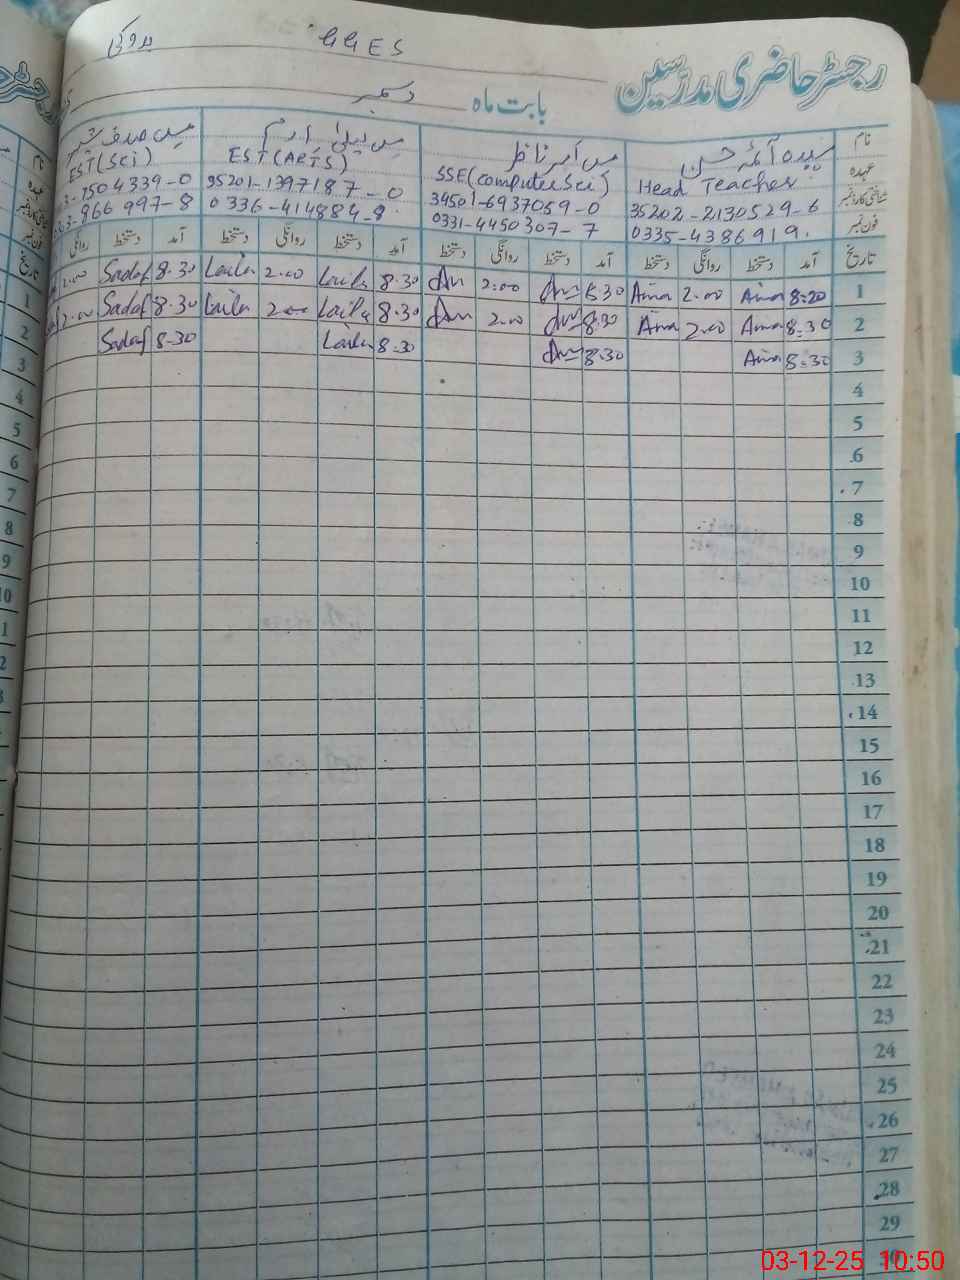 GGES
رجسٹر حاضری مدرسین
بابت ماہ دسمبر
نام سیدہ آئمہ حسن
عہدہ Head Teacher SSE (Computer Sci) EST (ARTS) EST (SCI)
شناختی کارڈ نمبر 35202-2130529-6 34501-6937059-0 35201-1797187-0
فون نمبر 0335-4386919. 0331-4450307-7 0336-414884-8
تاریخ آمد دستخط روانگی دستخط آمد دستخط روانگی دستخط آمد دستخط روانگی دستخط آمد دستخط روانگی
1 8:20 Aima 2.00 Aima 8.30 2.00 8.30 Laila 2.00 Laila 8.30 Sadaf 2.00
2 8:30 Aima 2.00 Aima 8.30 2.00 8.30 Laila 2.00 Laila 8.30 Sadaf 2.00
3 8:30 Aima 8.30 8:30 Laila 8.30 Sadaf
4
5
6
7
8
9
10
11
12
13
14
15
16
17
18
19
20
21
22
23
24
25
26
27
28
29
30
03-12-25 10:50